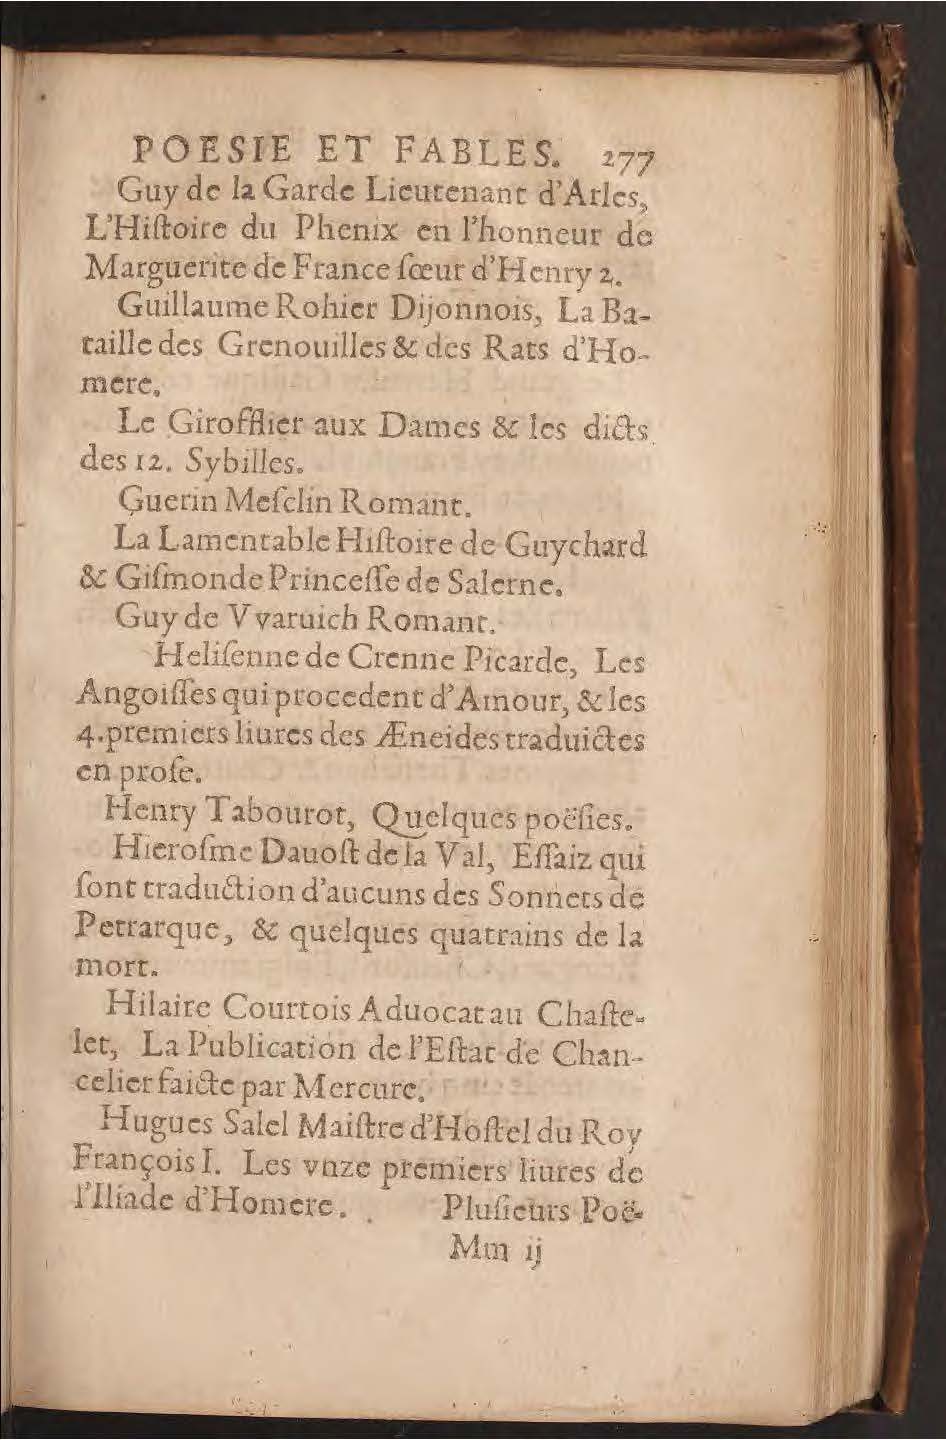 POESIE ET FABLES. 277
Guy de la Garde Lieutenant d'Arles,
L'Hiſtoire du Phenix en l'honneur de
Marguerite de France ſœur d'Henry 2.
Guillaume Rohier Dijonnois, La Ba-
taille des Grenouilles & des Rats d'Ho-
mere.
Le Girofflier aux Dames & les dicts
des 12. Sybilles.
Guerin Meſclin Romant.
La Lamentable Hiſtoire de Guychard
& Giſmonde Princeſſe de Salerne.
Guy de Vvaruich Romant.
Heliſenne de Crenne Picarde, Les
Angoiſſes qui procedent d'Amour, & les
4. premiers liures des Æneides traduictes
en proſe.
Henry Tabourot, Quelques poëſies.
Hieroſme Dauoſt de la Val, Eſſaiz qui
ſont traduction d'aucuns des Sonnets de
Petrarque, & quelques quatrains de la
mort.
Hilaire Courtois Aduocat au Chaſte-
let, La Publication de l'Eſtat de Chan-
celier faicte par Mercure.
Hugues Salel Maiſtre d'Hoſtel du Roy
François I. Les vnze premiers liures de
l'Iliade d'Homere. Pluſieurs Poë-
Mm ij